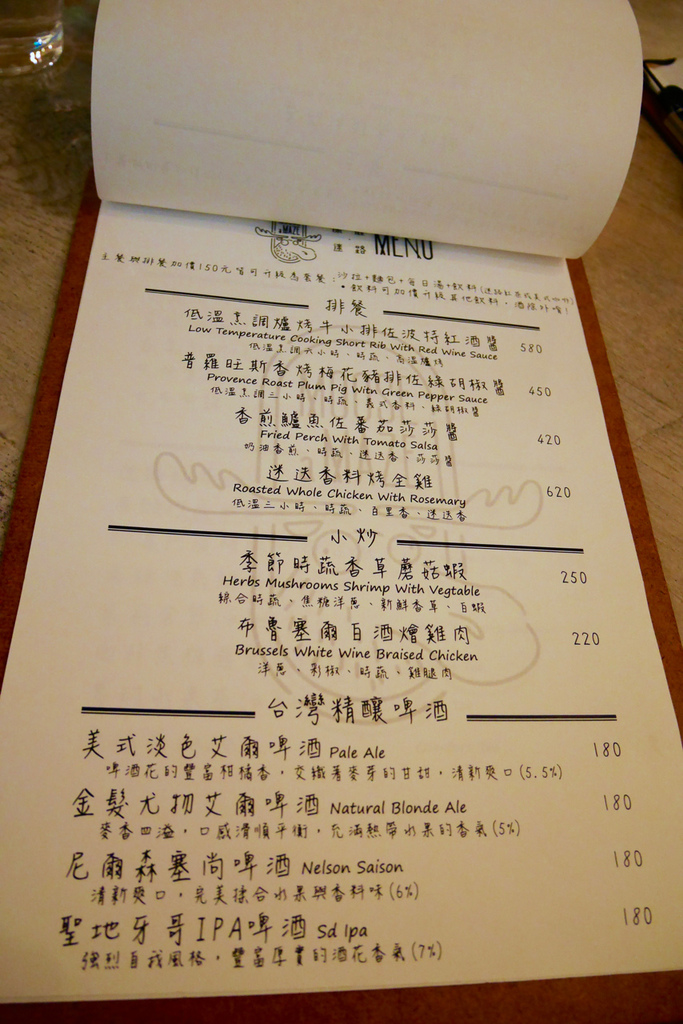 MAZE
MENU
主餐與排餐加價150元皆可升級為套餐：沙拉+麵包+每日湯+飲料(迷路紅茶或美式咖啡)
•飲料可加價升級其他飲料，酒除外哦！
排餐
低溫烹調爐烤牛小排佐波特紅酒醬 580
Low Temperature Cooking Short Rib With Red Wine Sauce
低溫烹調六小時、時蔬、高溫爐烤
普羅旺斯香烤梅花豬排佐綠胡椒醬 450
Provence Roast Plum Pig With Green Pepper Sauce
低溫烹調三小時、時蔬、義式香料、綠胡椒醬
香煎鱸魚佐蕃茄莎莎醬 420
Fried Perch With Tomato Salsa
奶油香煎、時蔬、迷迭香、莎莎醬
迷迭香料烤全雞 620
Roasted Whole Chicken With Rosemary
低溫三小時、時蔬、百里香、迷迭香
小炒
季節時蔬香草蘑菇蝦 250
Herbs Mushrooms Shrimp With Vegtable
綜合時蔬、焦糖洋蔥、新鮮香草、白蝦
布魯塞爾白酒燴雞肉 220
Brussels White Wine Braised Chicken
洋蔥、彩椒、時蔬、雞腿肉
台灣精釀啤酒
美式淡色艾爾啤酒 Pale Ale 180
啤酒花的豐富柑橘香，交織著麥芽的甘甜，清新爽口(5.5%)
金髮尤物艾爾啤酒 Natural Blonde Ale 180
麥香四溢，口感滑順平衡，充滿熱帶水果的香氣(5%)
尼爾森塞尚啤酒 Nelson Saison 180
清新爽口，完美揉合水果與香料味(6%)
聖地牙哥IPA啤酒 Sd Ipa 180
強烈自我風格，豐富厚實的酒花香氣(7%)